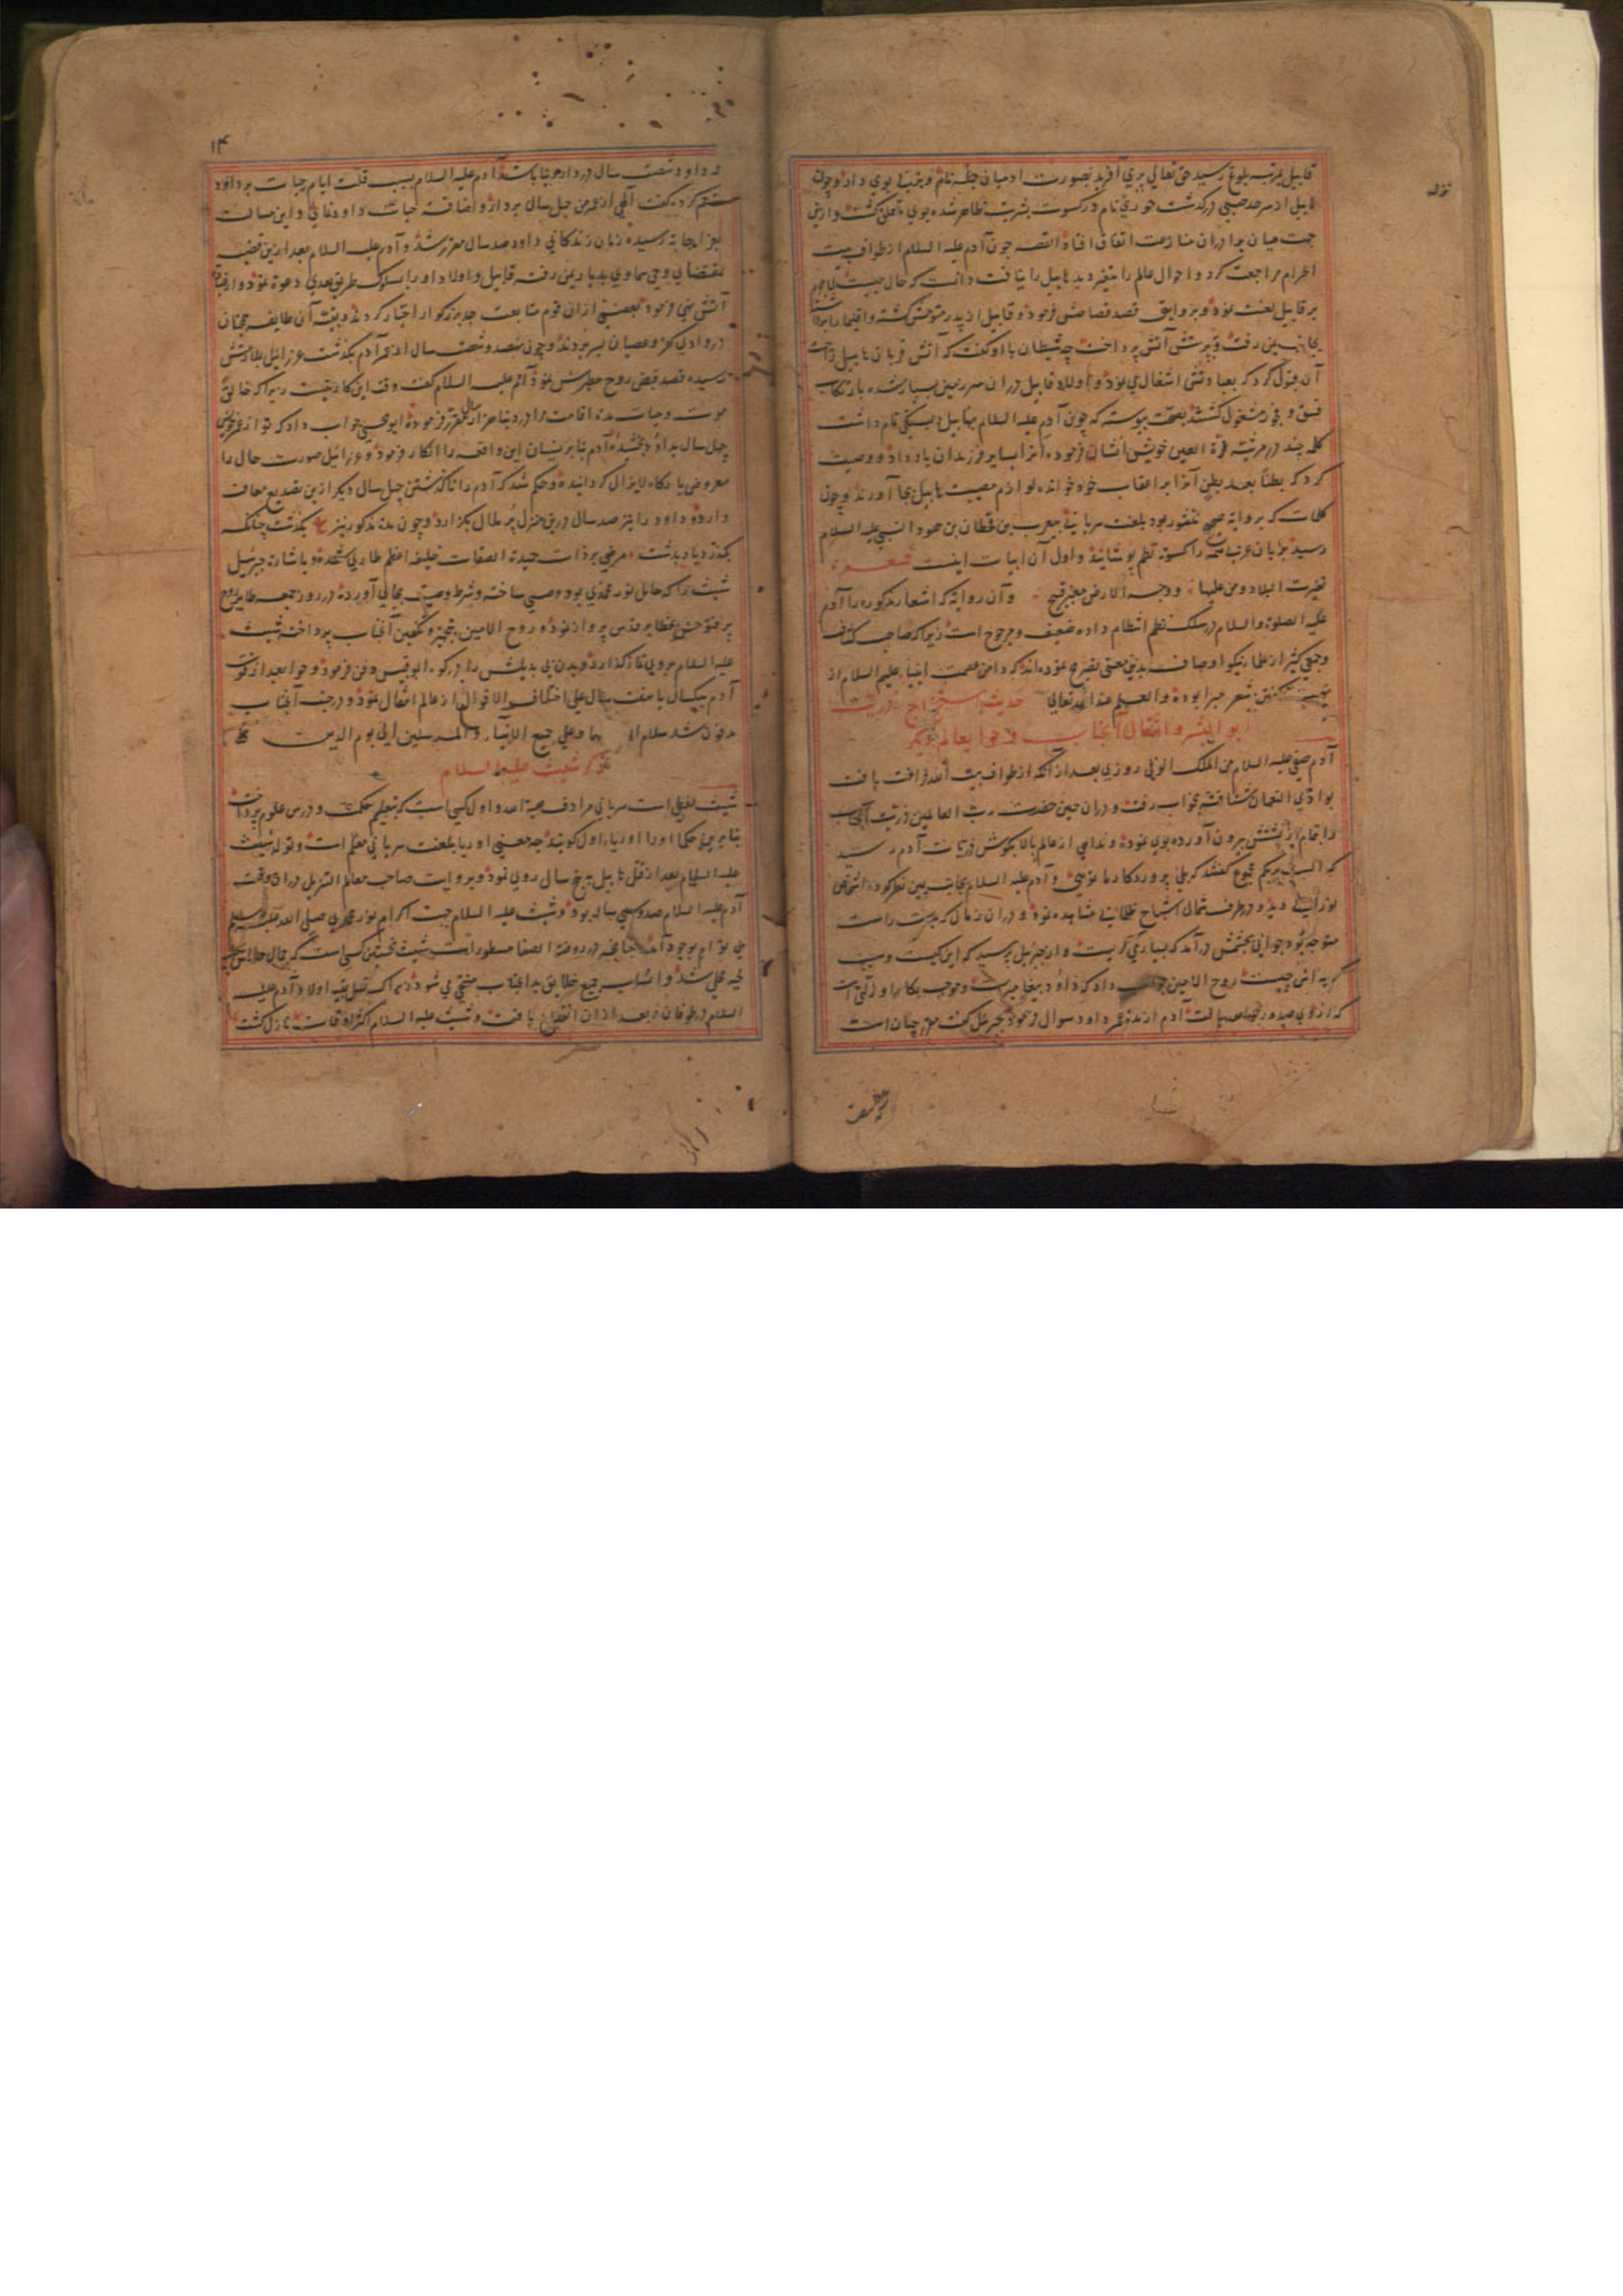 قابیل بمرتبه بلوغ رسید حق تعالی پری آفرید بصورت ادمیان جمله نام و بزنی بوی داد و چون
هابیل از سرحد صبی درگذشت حوری نام در کسوت بشریت ظاهر شده بوی تعلق گشت و ازین
جهت میان برادران منازعت اتفاق افتاد القصه چون آدم علیه السلام از طواف بیت
احرام مراجعت کرد و احوال عالم را متغیر دید هابیل را نیافت دانست که حال چیست
بر قابیل لعنت نمود و بروایتی قصد قصاص فرمود و قابیل از پدر متوحش گشته و اقلیما را
بجانب یمن رفت و بپرستش آتش پرداخت چه شیطان با او گفت که آتش قربان هابیل را جهت
آن قبول کرد که بعبادتش اشتغال می نمود و اولاد قابیل در ان سرزمین بسیار شده بارتکاب
فسق و فجور مشغول گشتند بصحت پیوسته که چون آدم علیه السلام بهابیل نام داشت
کلمه چند در مرثیه قرة العین خویش انشا فرموده آنرا بسایر فرزندان یاد داد و وصیت
کرد که بطنا بعد بطن آنرا بر اعقاب خود خوانده لوازم مصیبت هابیل بجا آورند و چون
کلمات که بروایة صحیح منثور بود بلغت سریانی بیعرب بن قحطان بن هود النبی علیه السلام
رسید بزبان عربی آنرا کسوة نظم پوشانید و اول آن ابیات اینست شعر
تغیرت البلاد و من علیها ووجه الارض مغبر قبیح و آن روایة که اشعار مذکوره را آدم
علیه الصلوة والسلام در سلک نظم انتظام داده ضعیف و مرجوح است زیرا که صاحب کشاف
و جمعی کثیر از علما نیکو اوصاف بدین معنی تصریح نموده اند که دامن عصمت انبیا علیهم السلام از
گفتن شعر مبرا بوده والعلم عند الله تعالی حدیث استخراج ذریت
ابوالبشر و انتقال آنجناب و حوا بعالم دیگر
آدم صفی علیه السلام من الملک الوفی روزی بعد از آنکه از طواف بیت الله فراغت یافت
بوادی النعمان شتافته بخواب رفت و در ان حین حضرت رب العالمین ذریت آنجناب
را تمام از پشتش بیرون آورده بوی نموده و ندایی از عالم بالا بگوش ذریات آدم رسید
که الست بربکم مجموع گفتند که بلی پروردگار ما تویی و آدم علیه السلام بجانب یمین نظر کرده اشخاص
نورانی دید و در طرف شمال اشباح ظلمانی مشاهده نمود و در ان زمان که بدست راست
متوجه بود جوانی بچشمش درآمد که بسیار می گریست و از جبرئیل پرسید که این کیست و سبب
گریه اش چیست روح الامین جواب داد که داود پیغامبر است و موجب بکاء او زلتی است
که از وی صدور خواهد یافت آدم از مدة عمر داود سوال فرمود جبرئیل گفت مقرر چنان است
۱۴
که داود شصت سال در دار دنیا باشد آدم علیه السلام بسبب قلت ایام حیات بر داود
ترحم کرده گفت الهی از عمر من چهل سال بردار و اضافه حیات داود فرمای و این مسالت
بعز اجابة رسیده زمان زندگانی داود صد سال مقرر شد و آدم علیه السلام بعد ازین قضیه
بمقتضای وحی سماوی بدیار یمن رفته قابیل و اولاد او را بسلوک طریق هدی دعوة نمود و از عبادة
آتش نهی فرمود بعضی ازان قوم متابعت جد بزرگوار اختیار کردند و بقیة آن طایفه همچنان
در وادی کفر و عصیان بسر بردند و چون نهصد و شصت سال از عمر آدم بگذشت عزرائیل بملازمتش
رسیده قصد قبض روح مطهرش نمود آدم علیه السلام گفت وقت این کار نیست زیرا که خالق
موت و حیات مدة اقامت مرا در دنیا هزار سال مقرر فرموده ابو یحیی جواب داد که تو از عمر خویش
چهل سال بداود بخشیدۀ آدم بنا بر نسیان این واقعه را انکار فرمود و عزرائیل صورت حال را
معروض بارگاه لایزال گردانیده و حکم شد که آدم را تا گذشتن چهل سال دیگر ازین تصدیع معاف
دارد و داود را نیز صد سال درین منزل پر ملال بگذارد و چون مدة مذکور نیز بگذشت چنانکه
بگذرد باد بدشت مرضی بر ذات حمیدة الصفات خلیفه اعظم طاری شده و باشارة جبرئیل
شیث را که حامل نور محمدی بود وصی ساخته و شرط وصیت بجای آورده در روز جمعه طایر روح
پر فتوحش بحظایر قدس پرواز نمود و روح الامین بتجهیز و تکفین آنجناب پرداخته شیث
علیه السلام بروی نماز گذارد و بدن بی بدیلش را در کوه ابوقبیس دفن فرمود و حوا بعد از فوت
آدم بیکسال یا هفت سال علی اختلاف الاقوال از عالم انتقال نمود و در جنب آنجناب
مدفون شد سلام الله علیهما و علی جمیع الانبیاء والمرسلین الی یوم الدین
ذکر شیث علیه السلام
شیث لفظی است سریانی مرادف هبة الله و اول کسی است که بتعلیم حکمت و درس علوم پرداخت
بنا برین حکما او را اوریاء اول گویند چه معنی اوریا بلغت سریانی معلم است و تولد شیث
علیه السلام بعد از قتل هابیل به پنج سال روی نمود و بروایت صاحب معالم التنزیل در ان وقت
آدم علیه السلام صد و سی ساله بود و شیث علیه السلام جهت اکرام نور محمدی صلی الله علیه وسلم
بی توام بوجود آمد چنانچه در روضة الصفا مسطور است شیث نخستین کسی است که
لحیه محلی شد و انساب جمیع خلایق بدانجناب منتهی می شود زیرا که نسل بقیه اولاد آدم علیه
السلام در طوفان و بعد از ان انقطاع یافت و شیث علیه السلام اکثر اوقات